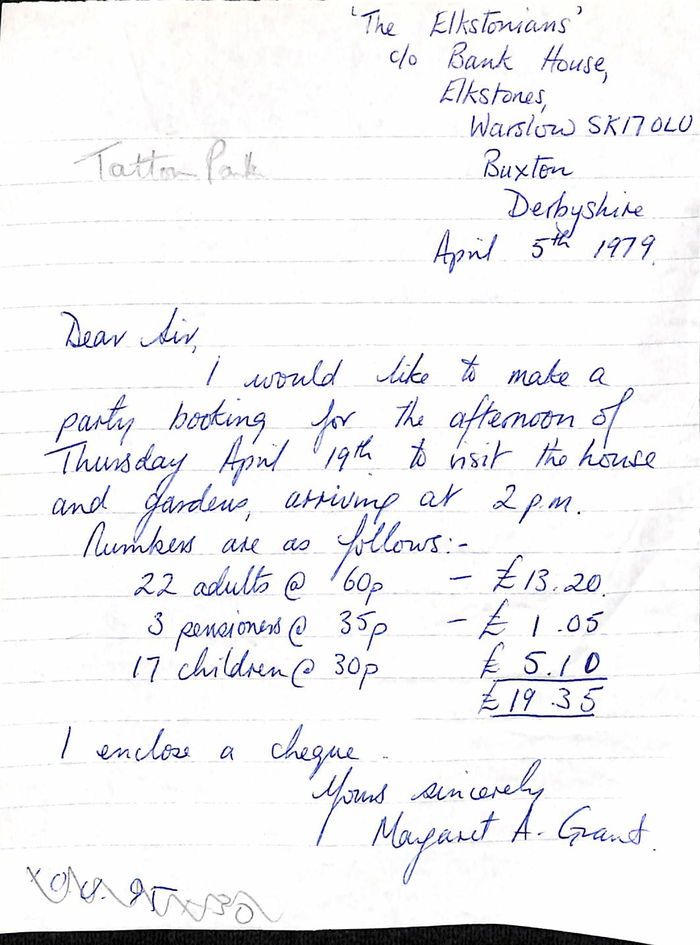 'The Elkstonians'
c/o Bank House,
Elkstones,
Warslow SK17 0LU
Tatton Park
Buxton
Derbyshire
April 5th 1979.
Dear Sir,
I would like to make a
party booking for the afternoon of
Thursday April 19th to visit the house
and gardens, arriving at 2 p.m.
Numbers are as follows:-
22 adults @ 60p - £13.20.
3 pensioners @ 35p - £ 1.05
17 children @ 30p £ 5.10
£19.35
I enclose a cheque.
Yours sincerely
Margaret A. Grant.